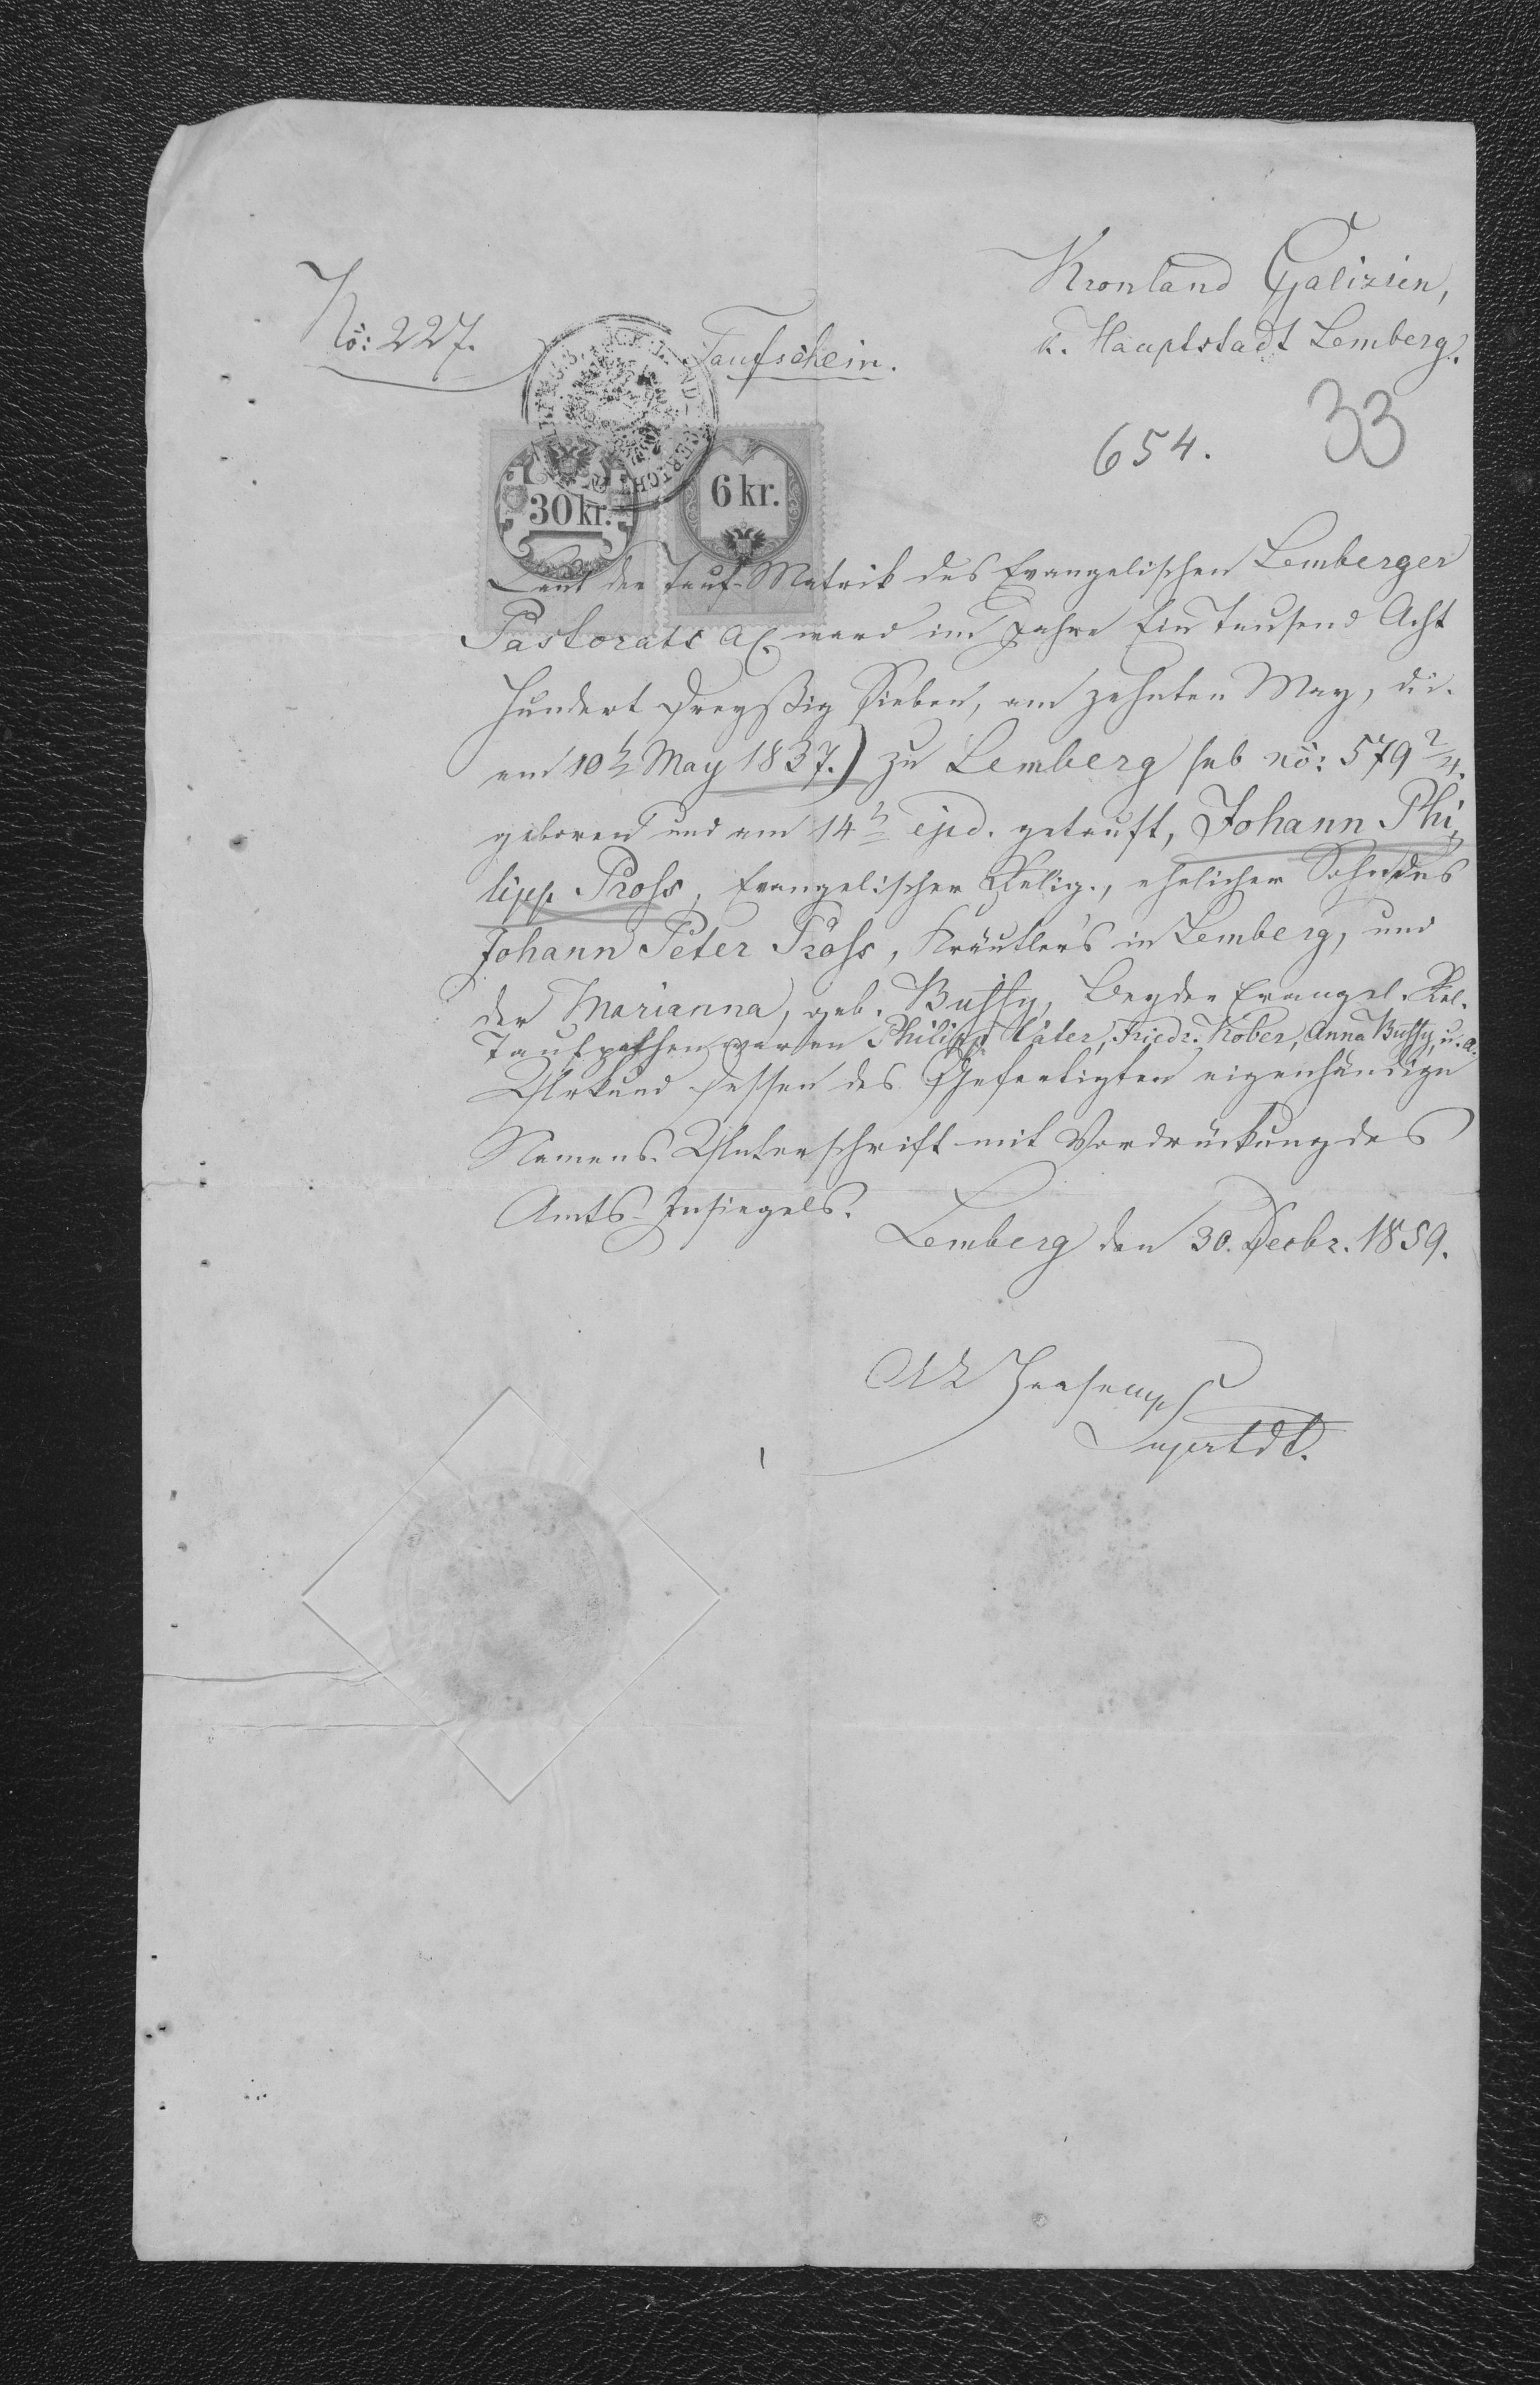 Kronland Galizien,
k. Hauptstadt Lemberg.
No: 227.
Taufschein.
33
654.
30 kr.
6 kr.
Laut der Tauf-Matrik des Evangelischen Lemberger
Pastorats AC. ward im Jahre Ein Tausend Acht
Hundert Dreyßig Sieben, am zehnten May, d.i.
am 10t May 1837.) zu Lemberg sub no: 579 2/4.
geboren und am 14t ejsd. getauft, Johann Phi,
lipp Pross, Evangelischer Relig., ehelicher Sohn des
Johann Peter Pross, Kräutlers in Lemberg, und
der Marianna, geb. Bussy, Beyder Evangel. Rel.
Taufpathen waren Philipp Vater, Friedr. Kober, Anna Bussy, u. a.
Urkund dessen des Gefertigten eigenhändige
Namens-Unterschrift mit Vordrückung des
Amts-Insiegels.
Lemberg den 30. Decbr. 1859.
Supertdt.